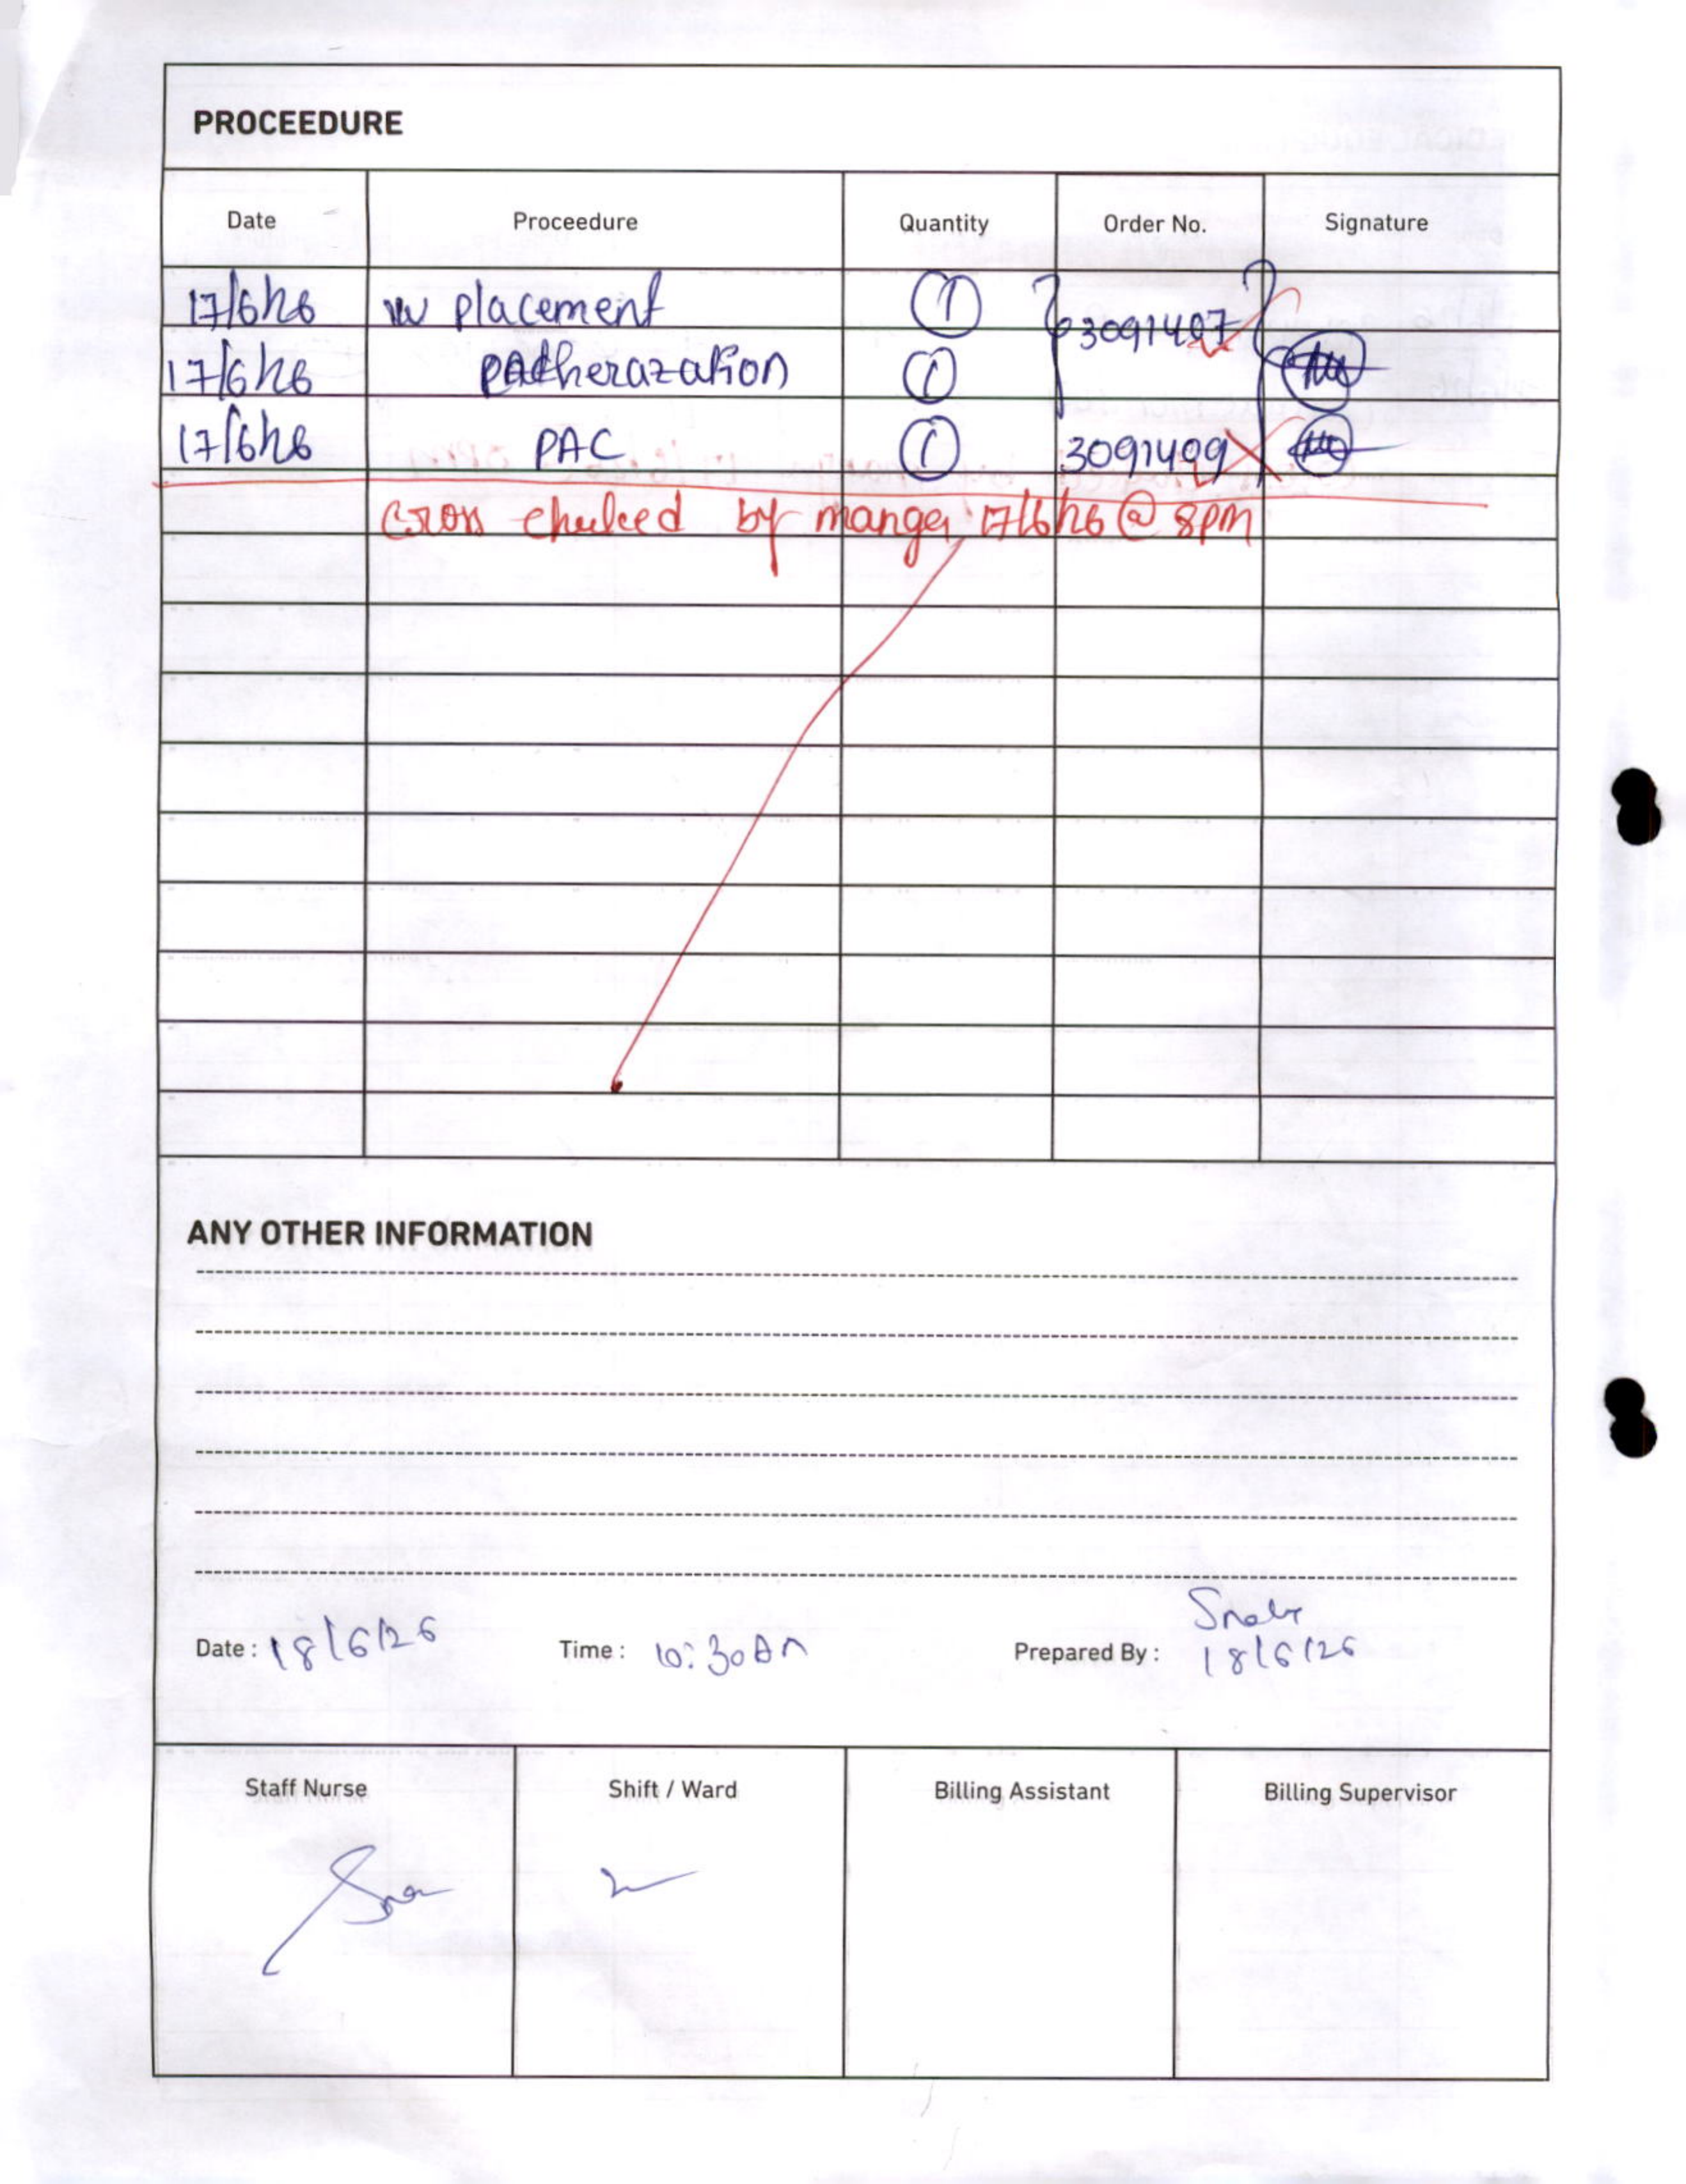 PROCEEDURE
Date Proceedure Quantity Order No. Signature
17/6/26 IV placement 1 3091407
17/6/26 catherazation 1
17/6/26 PAC 1 3091409
Cross cheked by manger 17/6/26 @ 8pm
ANY OTHER INFORMATION
Date : 18/6/26 Time : 10:30 AM Prepared By :
18/6/26
Staff Nurse Shift / Ward Billing Assistant Billing Supervisor